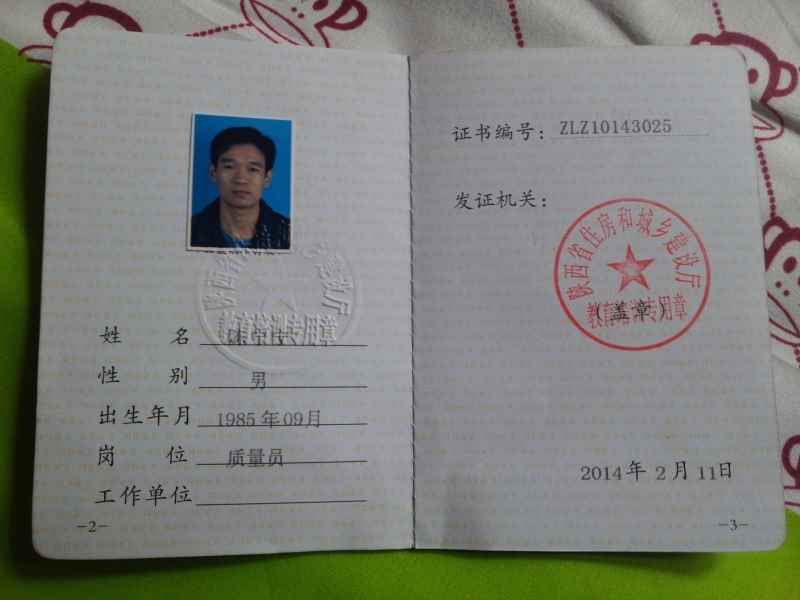 姓名
性别 男
出生年月 1985年09月
岗位 质量员
工作单位
-2-
证书编号: ZLZ10143025
发证机关:
陕西省住房和城乡建设厅
(盖章)
教育培训专用章
2014年2月11日
-3-